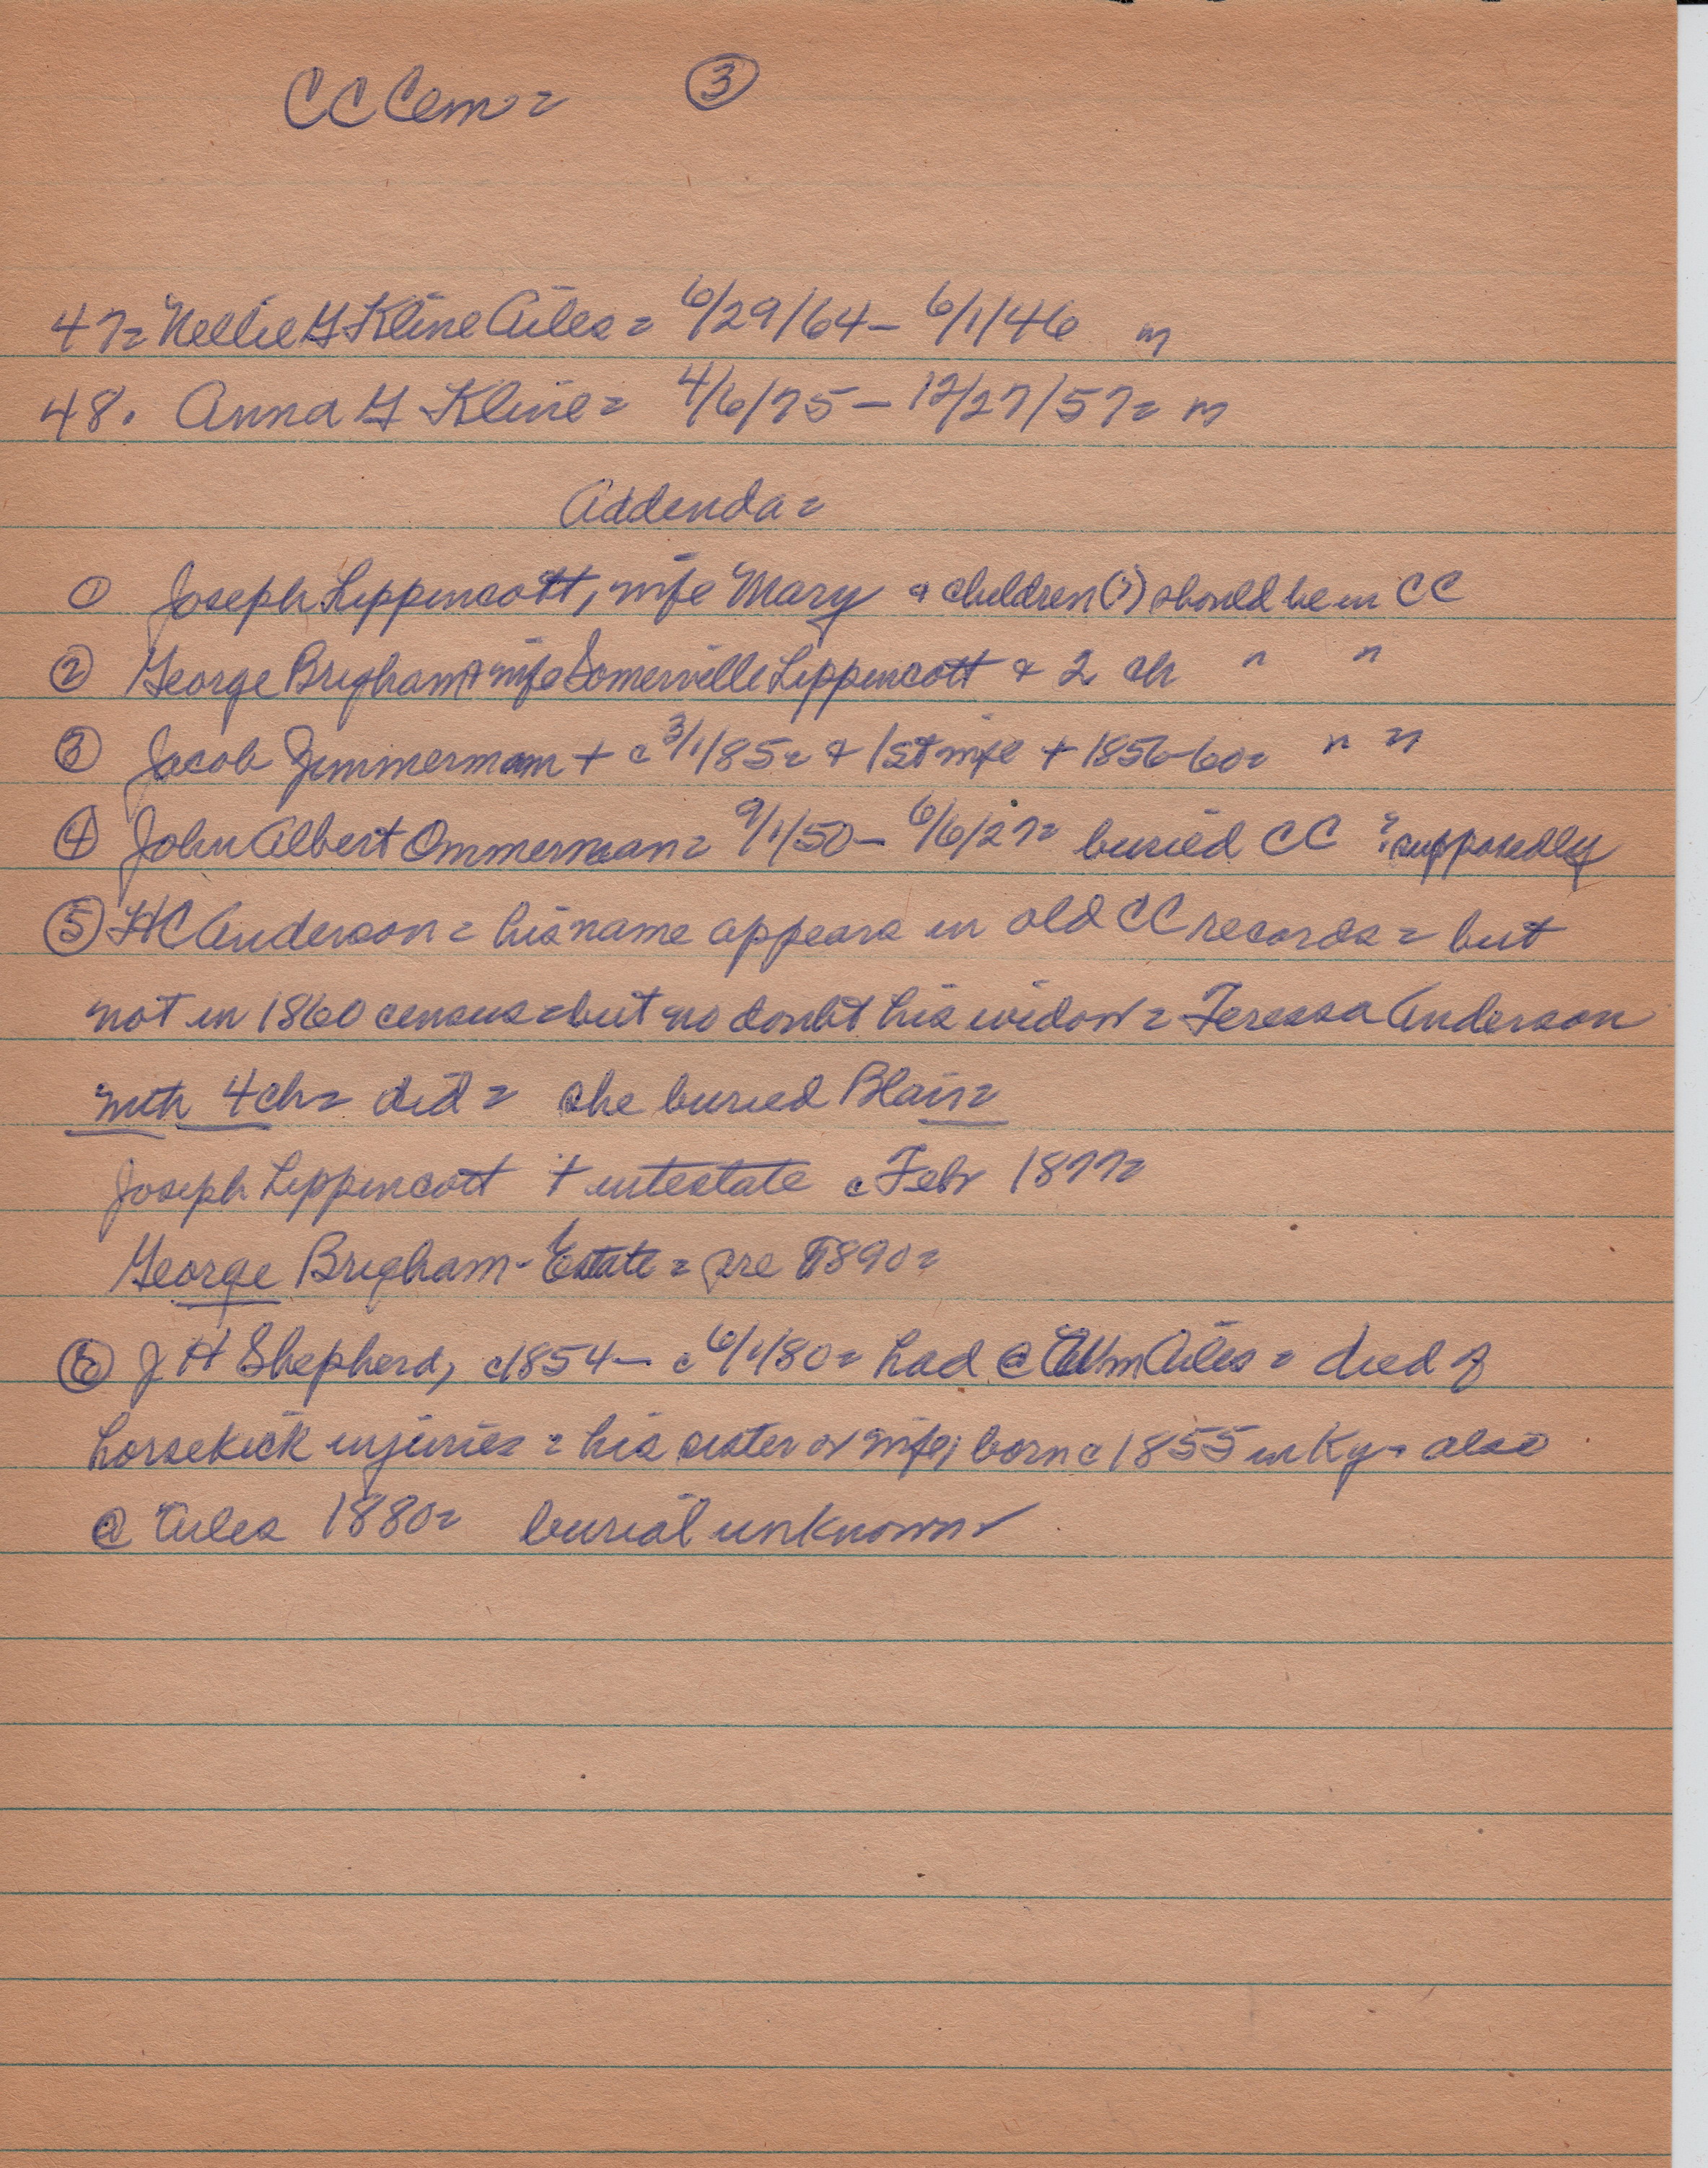 CC Cem = ③
47 = Nellie G Kline Aules = 6/29/64 - 6/1/46 m
48. Anna G Kline = 4/6/75 - 12/27/57 = m
Addenda =
① Joseph Lippencott, wife Mary & children (?) should be in CC
② George Brigham & wife Somerville Lippencott & 2 ch " "
③ Jacob Zimmerman + c 3/1/85 = & 1st wife + 1856-60 = " "
④ John Albert Ommerman = 9/1/50 - 6/6/27 = buried CC ? supposedly
⑤ HC Anderson = his name appears in old CC records = but
not in 1860 census = but no doubt his widow = Teressa Anderson
with 4 ch = did = she buried Blair =
Joseph Lippencott + intestate c Febr 1877 =
George Brigham - Estate = pre 1890 =
⑥ J H Shepherd, c1854 - c 6/1/80 = had @ Wm Aules = died of
horsekick injuries = his sister or wife, born c 1855 in Ky - also
@ Aules 1880 = burial unknown